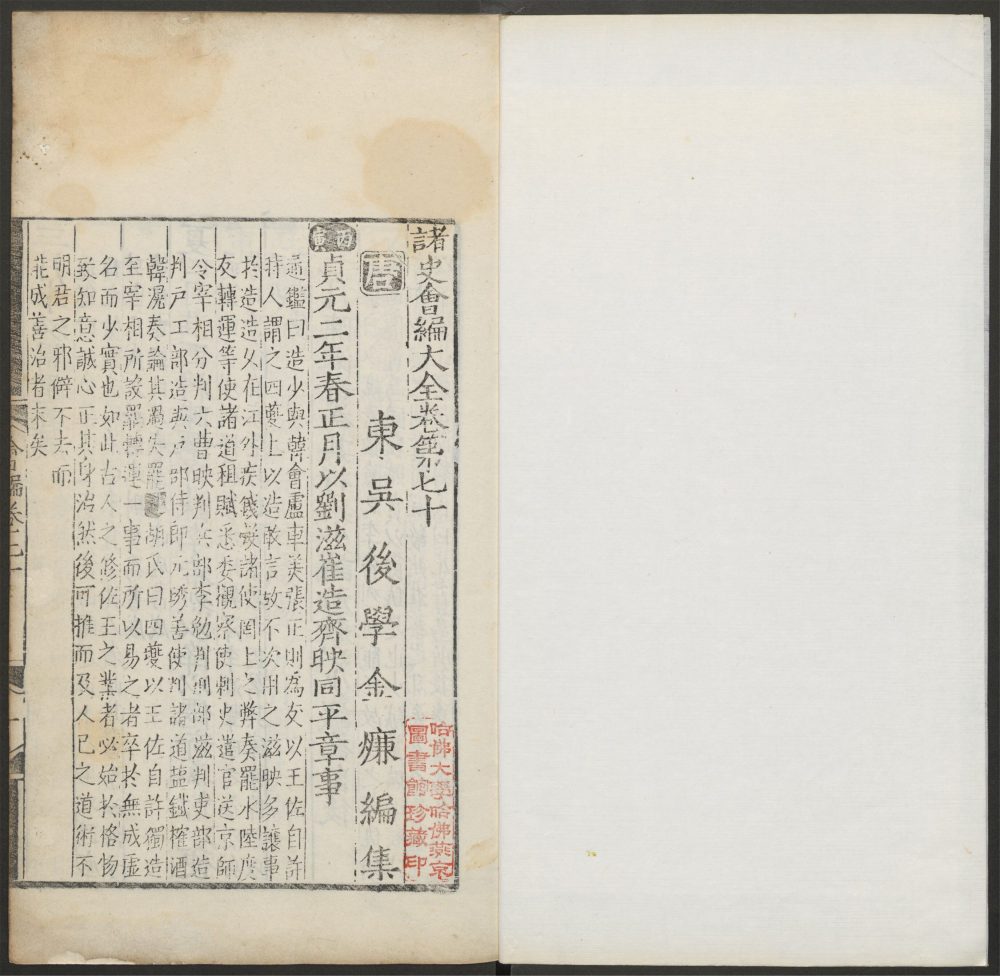 諸史會編大全卷第七十
東吳後學金㾾編集
唐
丙寅
貞元二年春正月以劉滋崔造齊映同平章事
通鑑曰造少與韓會盧東美張正則為友以王佐自許
時人謂之四夔上以造敢言故不次用之滋映多讓事
於造造久在江外疾錢榖諸使罔上之弊奏罷水陸度
支轉運等使諸道租賦悉委觀察使刺史遣官送京師
令宰相分判六曹映判兵部李勉判刑部滋判吏部造
判戶工部造與戶部侍郎元琇善使判諸道塩鐵榷酒
韓滉奏論其過失罷 胡氏曰四夔以王佐自許獨造
至宰相所設罷轉運一事而所以易之者卒於無成虛
名而少實也如此古人之修佐王之業者必始於格物
致知意誠心正其身治然後可推而及人已之道術不
明君之邪僻不去而
能成善治者末矣
會編卷七十
一
哈佛大學哈佛燕京
圖書館珍藏印